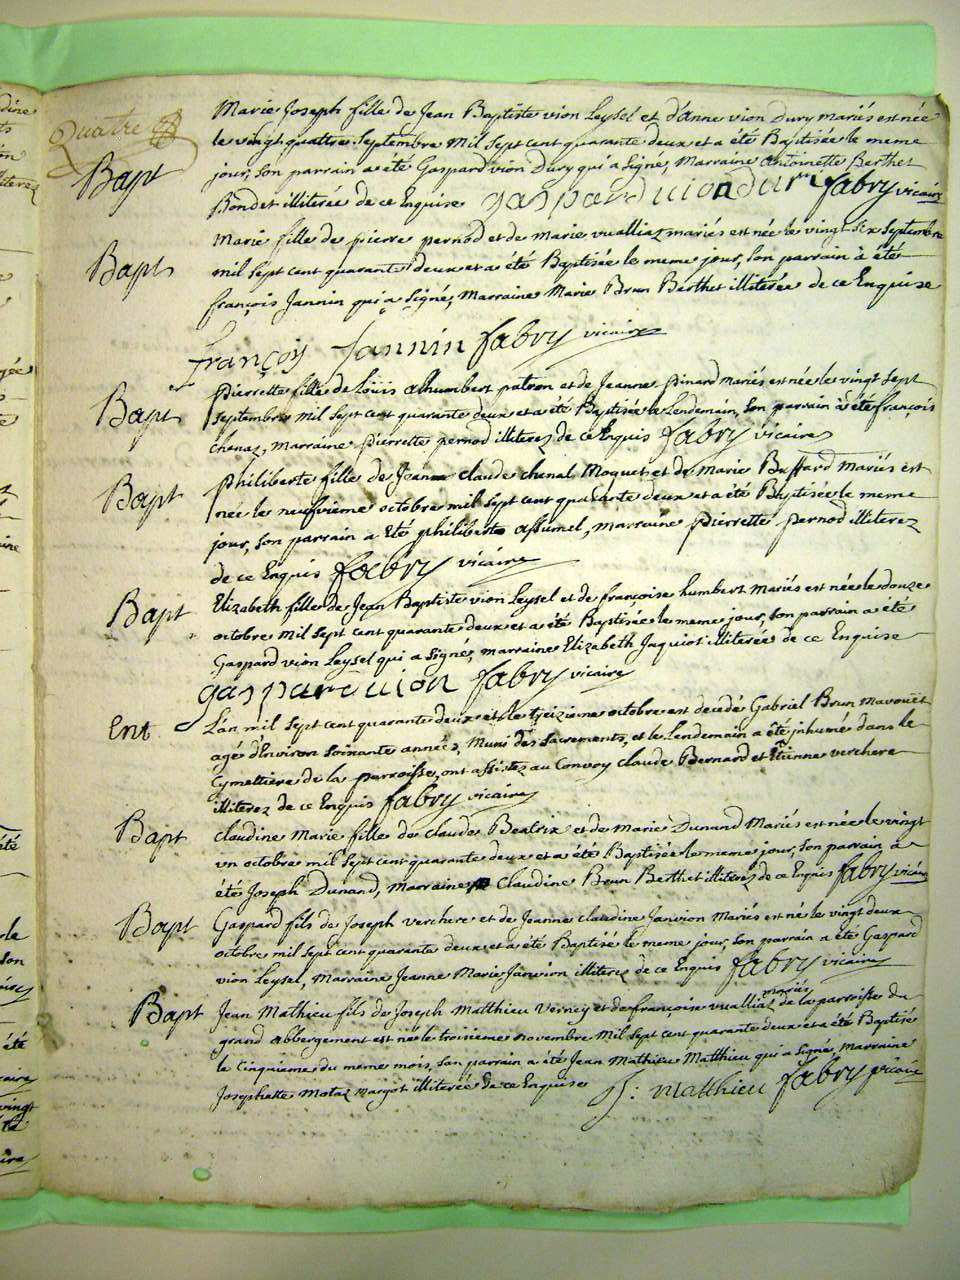 Quatre
Bapt
Marie Joseph fille de Jean Baptiste vion Leysel et d'Anne vion Dury mariés est née
le vingt quattre Septembre mil Sept cent quarante deux et a été Baptisée le meme
jour, Son parrain a eté Gaspard vion Dury qui a Signé, Marraine Antoinette Berthet
Bondet illiterée de ce Enquise gaspard uion duri fabry vicaire
Bapt
Marie fille de pierre pernod et de Marie vualliaz mariés est née le vingt Six Septembre
mil Sept cent quarante deux et a été Baptisée le meme jour, Son parrain à été
françois Jannin qui a Signé, Marraine Marie Brun Berthet illiterée de ce Enquise
françois Jannin fabry vicaire
Bapt
pierrette fille de Loüis alhumbert patron et de Jeanne pinard mariés est née le vingt Sept
Septembre mil Sept cent quarante deux et a été Baptisée le Lendemain, Son parrain à été françois
chanaz, Marraine pierrette pernod illiterez de ce Enquis fabry vicaire
Bapt
philiberte fille de Jean claude chenal Moquet et de Marie Buffard Mariés est
née le neufvieme octobre mil Sept cent quarante deux et a été Baptisée le meme
jour, Son parrain a Eté philiberte assumel, Marraine pierrette pernod illiterez
de ce Enquis fabry vicaire
Bapt
Elizabeth fille de Jean Baptiste vion Leysel et de françoise humbert Mariés est née le douze
octobre mil Sept cent quarante deux et a été Baptisée le meme jour, Son parrain a été
Gaspard vion Leysel qui a Signé, marraine Elizabeth Jaquiot illiterée de ce Enquise
gaspard uion fabry vicaire
Ent
L'an mil Sept cent quarante deux et le treizieme octobre est decedé Gabriel Brun Mavouët
agé d'Environ Soixante années, Muni des Sacrements, et le Lendemain a été inhumé dans le
Cymettiere de la parroisse, ont assistez au Convoy claude Bernard et Etienne verchere
illiterez de ce Enquis fabry vicaire
Bapt
claudine Marie fille de claude Beatrix et de Marie Dunand Mariés est née le vingt
un octobre mil Sept cent quarante deux et a été Baptisée le meme jour, Son parrain à
été Joseph Dunand, Marraine Claudine Brun Berthet illiterez de ce Enquis fabry vicaire
Bapt
Gaspard fils de Joseph verchere et de Jeanne claudine Janvion Mariés est né le vingt deux
octobre mil Sept cent quarante deux et a été Baptisé le meme jour, Son parrain a été Gaspard
vion Leysel, Marraine Jeanne Marie Janvion illiterez de ce Enquis fabry vicaire
Bapt
Jean Mathieu fils de Joseph Matthieu Verney et de françoise vualliaz mariés de la parroisse du
grand abbergement est né le troisieme novembre Mil Sept cent quarante deux et a été Baptisé
le Cinquieme du meme mois, Son parrain a été Jean Mathieu Matthieu qui a Signé, Marraine
Josephatte Motaz Margot illiterée de ce Enquise J: matthieu fabry vicaire